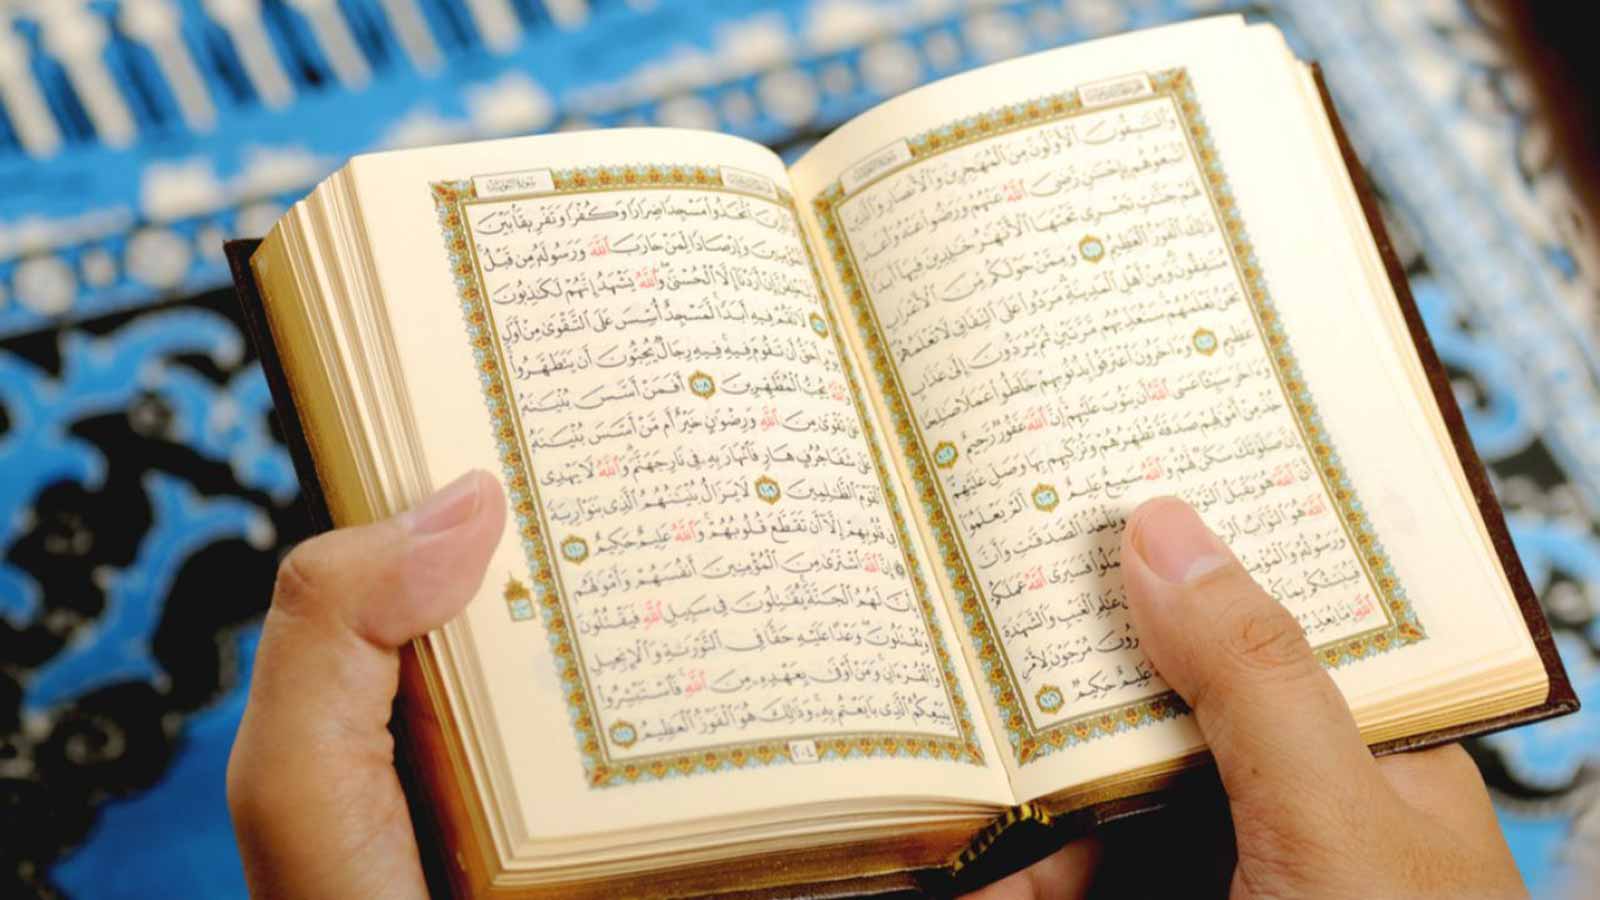 وَٱلسَّٰبِقُونَ ٱلْأَوَّلُونَ مِنَ ٱلْمُهَٰجِرِينَ وَٱلْأَنصَارِ وَٱلَّذِينَ
ٱتَّبَعُوهُم بِإِحْسَٰنٍ رَّضِىَ ٱللَّهُ عَنْهُمْ وَرَضُوا۟ عَنْهُ وَأَعَدَّ
لَهُمْ جَنَّٰتٍ تَجْرِى تَحْتَهَا ٱلْأَنْهَٰرُ خَٰلِدِينَ فِيهَآ أَبَدًا
ذَٰلِكَ ٱلْفَوْزُ ٱلْعَظِيمُ ١٠٠ وَمِمَّنْ حَوْلَكُم مِّنَ ٱلْأَعْرَابِ
مُنَٰفِقُونَ وَمِنْ أَهْلِ ٱلْمَدِينَةِ مَرَدُوا۟ عَلَى ٱلنِّفَاقِ لَا تَعْلَمُهُمْ
نَحْنُ نَعْلَمُهُمْ سَنُعَذِّبُهُم مَّرَّتَيْنِ ثُمَّ يُرَدُّونَ إِلَىٰ عَذَابٍ
عَظِيمٍ ١٠١ وَءَاخَرُونَ ٱعْتَرَفُوا۟ بِذُنُوبِهِمْ خَلَطُوا۟ عَمَلًا صَٰلِحًا
وَءَاخَرَ سَيِّئًا عَسَى ٱللَّهُ أَن يَتُوبَ عَلَيْهِمْ إِنَّ ٱللَّهَ غَفُورٌ رَّحِيمٌ ١٠٢
خُذْ مِنْ أَمْوَٰلِهِمْ صَدَقَةً تُطَهِّرُهُمْ وَتُزَكِّيهِم بِهَا وَصَلِّ عَلَيْهِمْ
إِنَّ صَلَوٰتَكَ سَكَنٌ لَّهُمْ وَٱللَّهُ سَمِيعٌ عَلِيمٌ ١٠٣ أَلَمْ يَعْلَمُوٓا۟
أَنَّ ٱللَّهَ هُوَ يَقْبَلُ ٱلتَّوْبَةَ وَيَأْخُذُ ٱلصَّدَقَٰتِ وَأَنَّ
ٱللَّهَ هُوَ ٱلتَّوَّابُ فَسَيَرَى ٱللَّهُ عَمَلَكُمْ
وَرَسُولُهُۥ عَٰلِمِ ٱلْغَيْبِ وَٱلشَّهَٰدَةِ
فَيُنَبِّئُكُم مُرْجَوْنَ لِأَمْرِ
ٱللَّهِ إِمَّا عَلِيمٌ حَكِيمٌ ١٠٦
سُورَةُ التَّوْبَةِ
ٱتَّخَذُوا۟ مَسْجِدًا ضِرَارًا وَكُفْرًا وَتَفْرِيقًۢا بَيْنَ
ٱلْمُؤْمِنِينَ وَإِرْصَادًا لِّمَنْ حَارَبَ ٱللَّهَ وَرَسُولَهُۥ مِن قَبْلُ
وَلَيَحْلِفُنَّ إِنْ أَرَدْنَآ إِلَّا ٱلْحُسْنَىٰ وَٱللَّهُ يَشْهَدُ إِنَّهُمْ لَكَٰذِبُونَ
١٠٧ لَا تَقُمْ فِيهِ أَبَدًا لَّمَسْجِدٌ أُسِّسَ عَلَى ٱلتَّقْوَىٰ مِنْ أَوَّلِ
يَوْمٍ أَحَقُّ أَن تَقُومَ فِيهِ فِيهِ رِجَالٌ يُحِبُّونَ أَن يَتَطَهَّرُوا۟
وَٱللَّهُ يُحِبُّ ٱلْمُطَّهِّرِينَ ١٠٨ أَفَمَنْ أَسَّسَ بُنْيَٰنَهُۥ
عَلَىٰ تَقْوَىٰ مِنَ ٱللَّهِ وَرِضْوَٰنٍ خَيْرٌ أَم مَّنْ أَسَّسَ بُنْيَٰنَهُۥ
عَلَىٰ شَفَا جُرُفٍ هَارٍ فَٱنْهَارَ بِهِۦ فِى نَارِ جَهَنَّمَ وَٱللَّهُ لَا يَهْدِى
ٱلْقَوْمَ ٱلظَّٰلِمِينَ ١٠٩ لَا يَزَالُ بُنْيَٰنُهُمُ ٱلَّذِى بَنَوْا۟ رِيبَةً
فِى قُلُوبِهِمْ إِلَّآ أَن تَقَطَّعَ قُلُوبُهُمْ وَٱللَّهُ عَلِيمٌ حَكِيمٌ ١١٠
إِنَّ ٱللَّهَ ٱشْتَرَىٰ مِنَ ٱلْمُؤْمِنِينَ أَنفُسَهُمْ وَأَمْوَٰلَهُم
بِأَنَّ لَهُمُ ٱلْجَنَّةَ يُقَٰتِلُونَ فِى سَبِيلِ ٱللَّهِ فَيَقْتُلُونَ
وَيُقْتَلُونَ وَعْدًا عَلَيْهِ حَقًّا فِى ٱلتَّوْرَىٰةِ وَٱلْإِنجِيلِ
وَٱلْقُرْءَانِ وَمَنْ أَوْفَىٰ بِعَهْدِهِۦ مِنَ ٱللَّهِ فَٱسْتَبْشِرُوا۟
بِبَيْعِكُمُ ٱلَّذِى بَايَعْتُم بِهِۦ وَذَٰلِكَ هُوَ ٱلْفَوْزُ ٱلْعَظِيمُ ١١١
٢٠٤